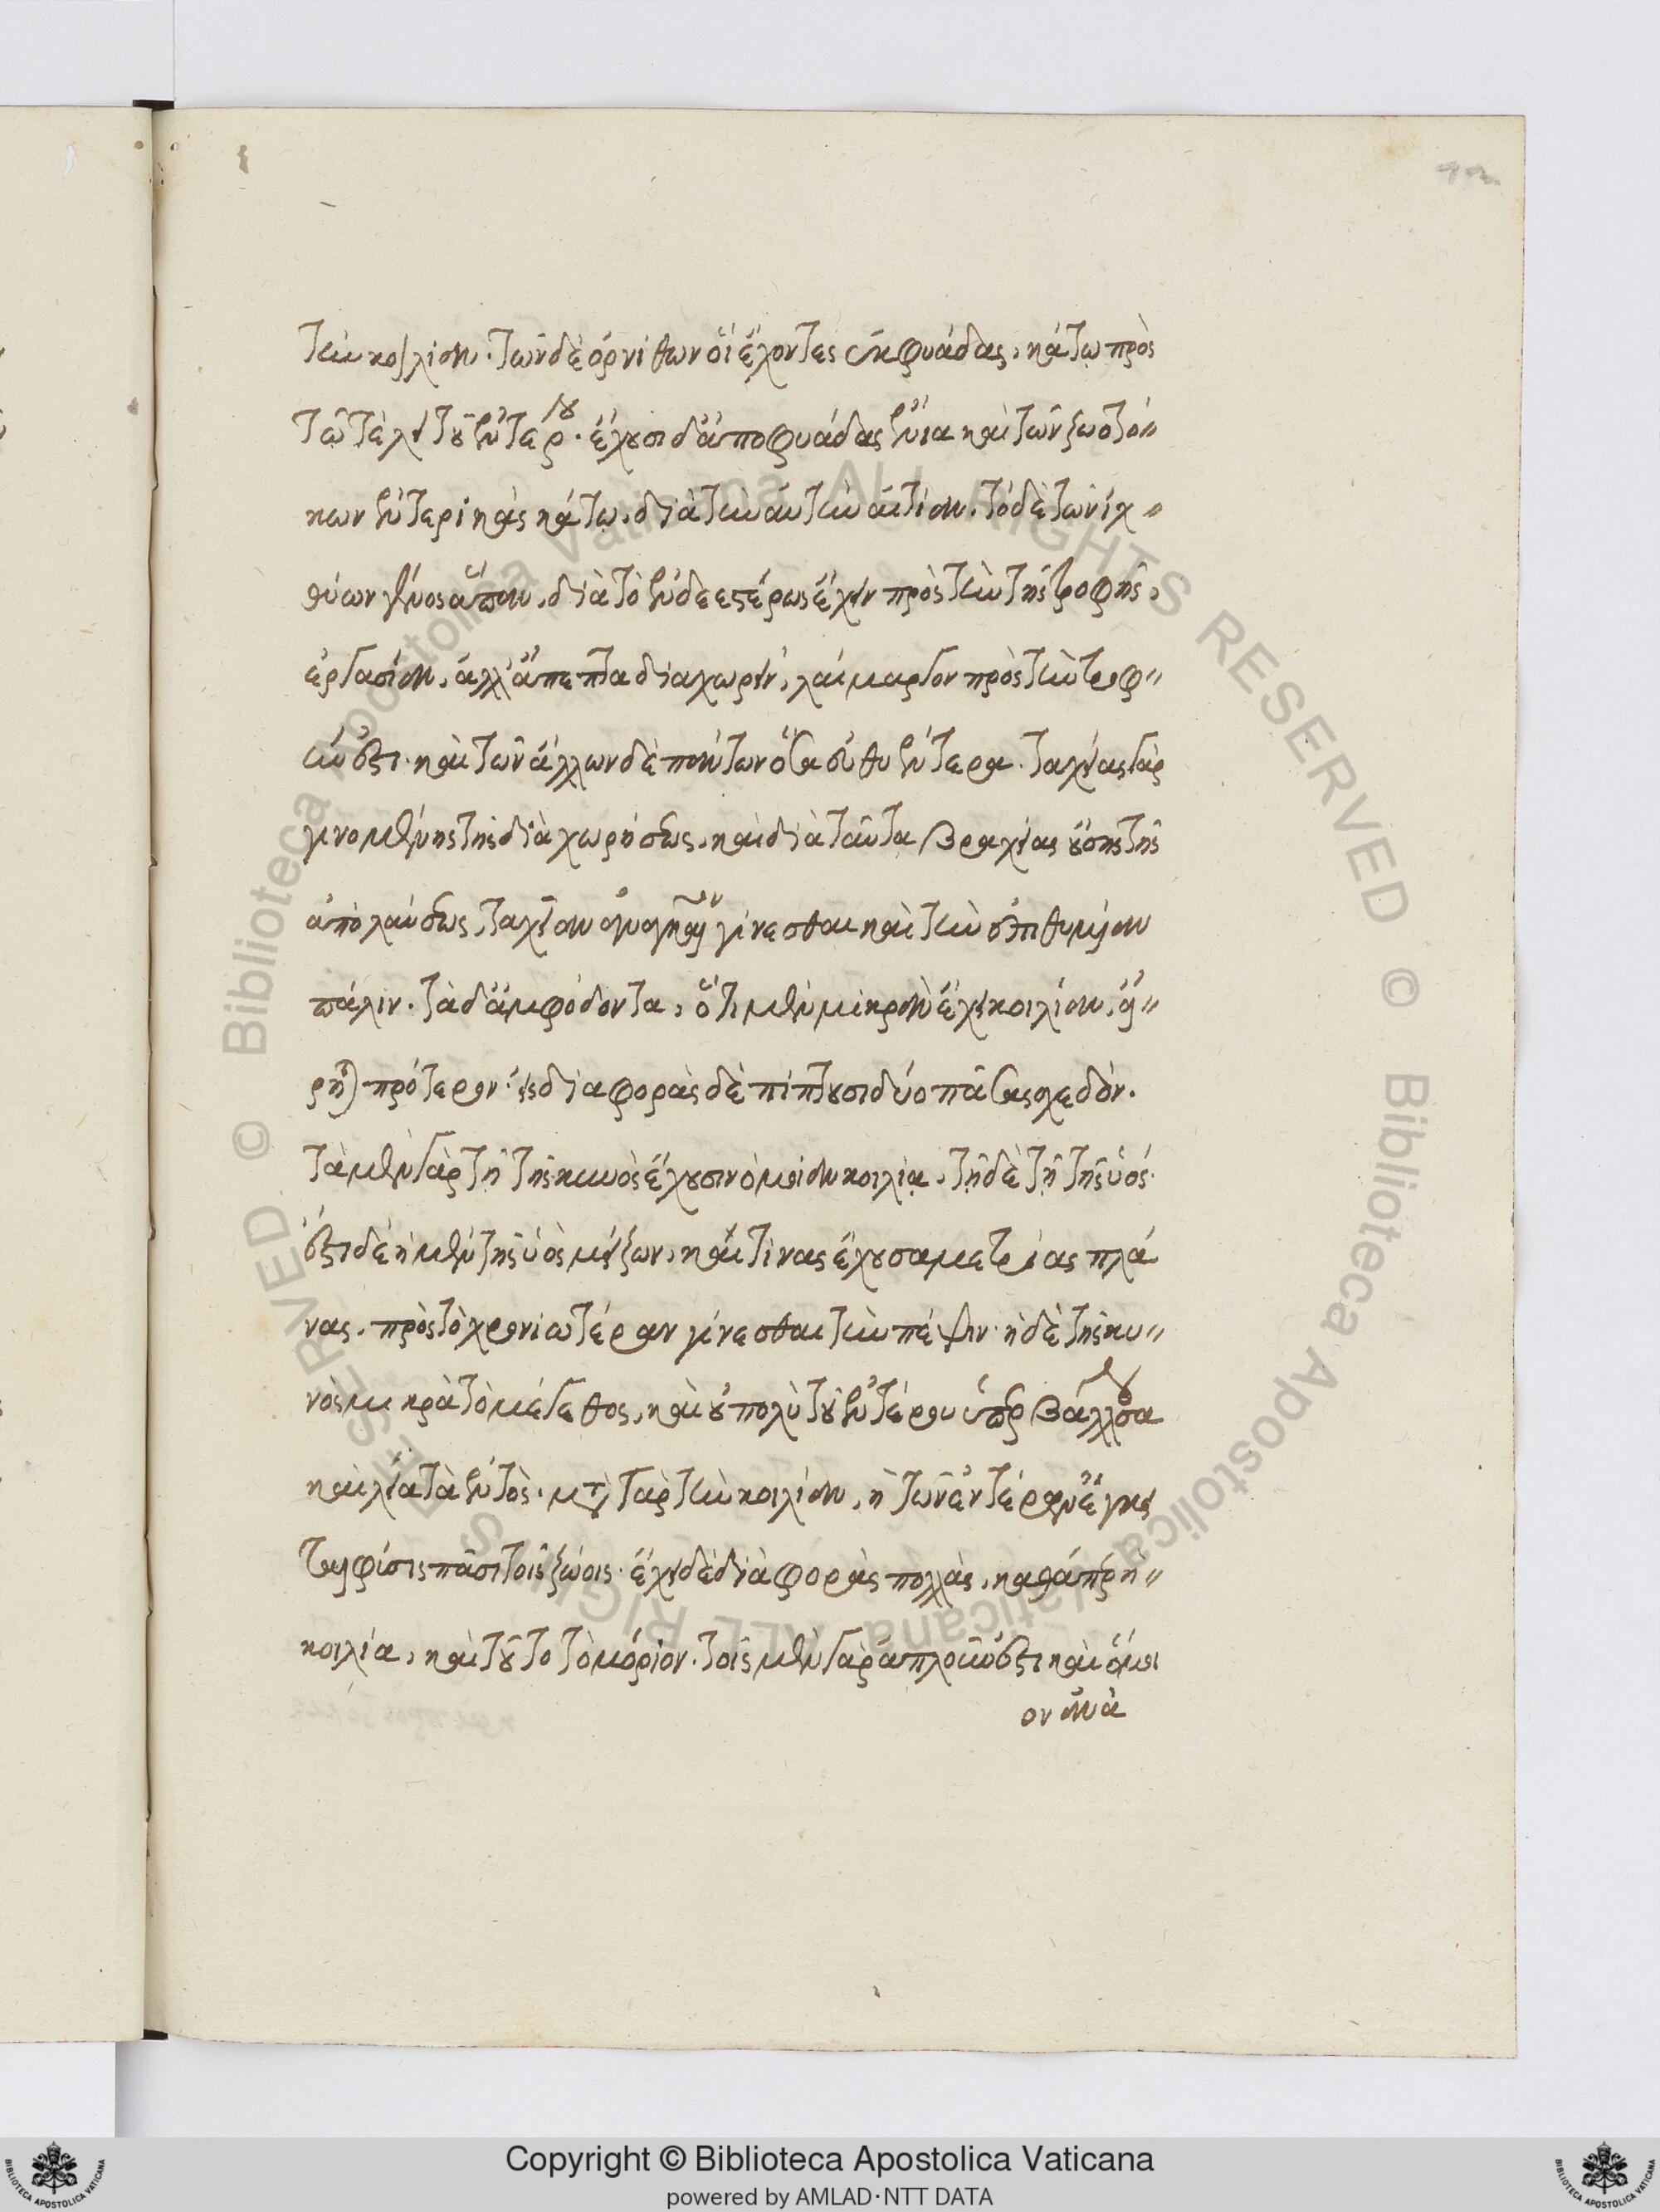 τὴν κοιλίαν. τῶν δὲ ὀρνίθων οἱ ἔχοντες ἐκφυάδας, κάτω πρὸς
τῷ τέλει τοῦ ἐντέρου. ἔχουσι δ' ἀποφυάδας ἔνια καὶ τῶν ζωοτό"
κων ἐντερικὰς κάτω, διὰ τὴν αὐτὴν αἰτίαν. τὸ δὲ τῶν ἰχ"
θύων γένος ἅπαν, διὰ τὸ ἐνδεεστέρως ἔχειν πρὸς τὴν τῆς τροφῆς,
ἐργασίαν, ἀλλ' ἄπεπτα διαχωρεῖν, λαίμαργον πρὸς τὴν τροφ"
ήν ἐστι. καὶ τῶν ἄλλων δὲ πάντων ὅσα εὐθυέντερα. ταχείας γὰρ
γινομένης τῆς διαχωρήσεως, καὶ διὰ ταῦτα βραχείας οὔσης τῆς
ἀπολαύσεως, ταχεῖαν ἀναγκαῖον γίνεσθαι καὶ τὴν ἐπιθυμίαν
πάλιν. τὰ δ' ἀμφόδοντα, ὅτι μὲν μικρὰν ἔχει κοιλίαν, εἴ"
ρηται πρότερον. εἰς διαφορὰς δὲ πίπτουσι δύο πᾶσαι σχεδόν.
τὰ μὲν γὰρ τῇ τῆς κυνὸς ἔχουσιν ὁμοίαν κοιλίᾳ, τῇ δὲ τῇ τῆς ὑός.
ἔστι δὲ ἡ μὲν τῆς ὑὸς μείζων, καί τινας ἔχουσα μετρίας πλά
κας, πρὸς τὸ χρονιωτέραν γίνεσθαι τὴν πέψιν. ἡ δὲ τῆς κυ"
νὸς μικρὰ τὸ μέγεθος, καὶ οὐ πολὺ τοῦ ἐντέρου ὑπερβάλλουσα
καὶ λεία τὰ ἐντός. μετὰ γὰρ τὴν κοιλίαν, ἡ τῶν ἐντέρων ἔγκει
ται φύσις πᾶσι τοῖς ζῴοις. ἔχει δὲ διαφορὰς πολλὰς, καθάπερ ἡ"
κοιλία, καὶ τοῦτο τὸ μόριον. τοῖς μὲν γὰρ ἁπλοῦν ἐστι καὶ ὅμοι
ον ἀνα